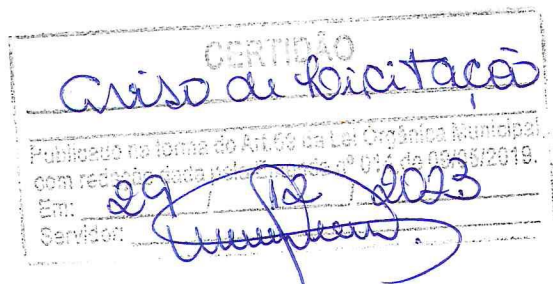 CERTIDÃO
Aviso de Licitação
Publicado na forma do Art.66 da Lei Orgânica Municipal,
com redação dada de 09/05/2019.
Em: 29 / 12 / 2023
Servidor: